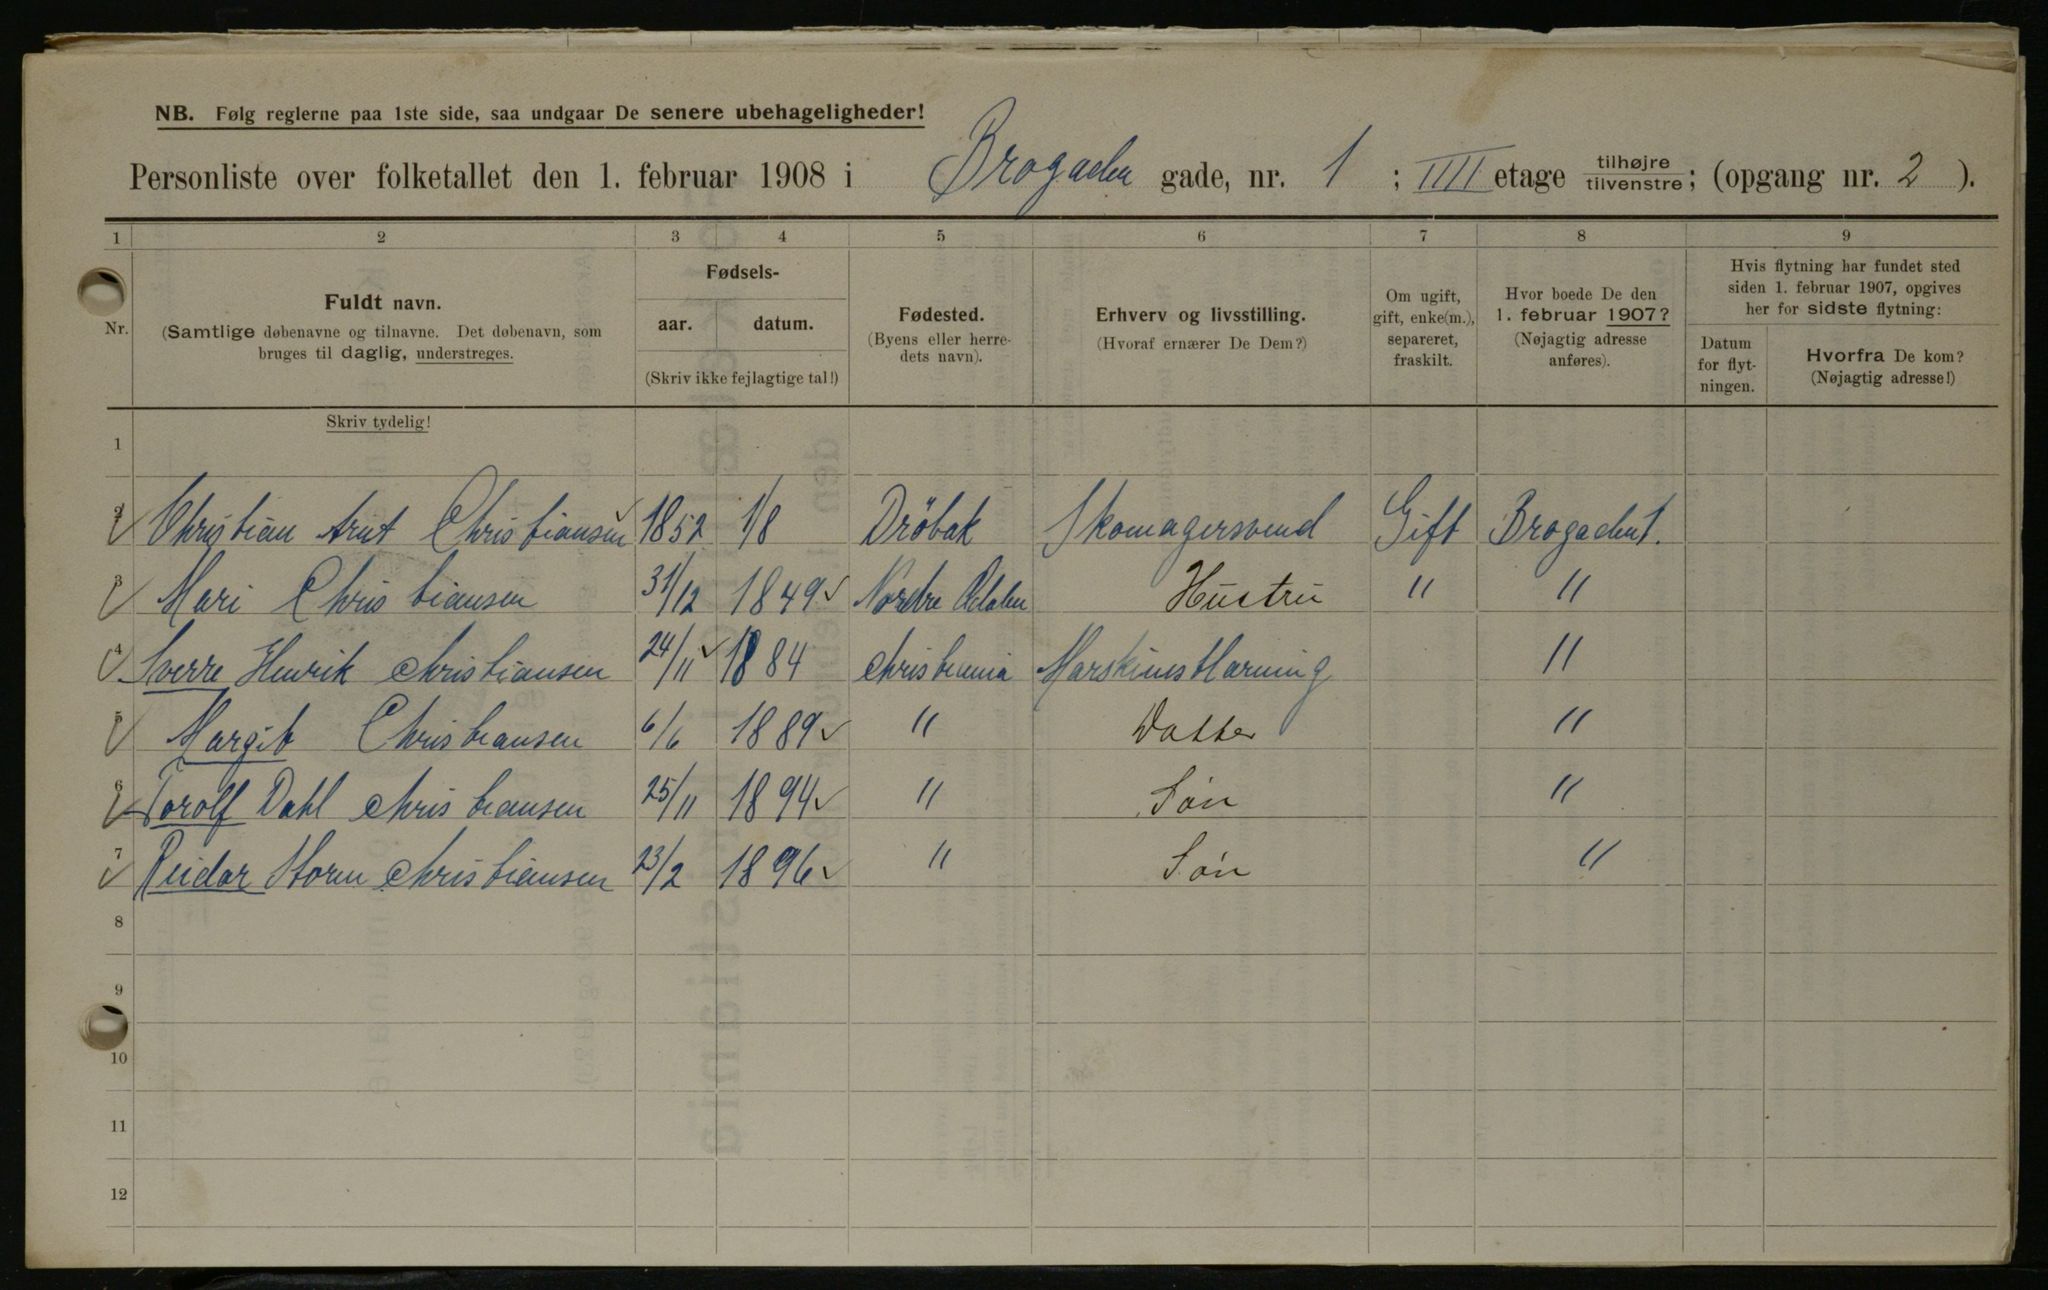 NB. Følg reglerne paa 1ste side, saa undgaar De senere ubehageligheder!
Personliste over folketallet den 1. februar 1908 i Brogaden gade, nr. 1 ; IIII etage tilhøjre tilvenstre; (opgang nr. 2 ).
1 2 3 4 5 6 7 8 9
Nr.
Fuldt navn.
(Samtlige døbenavne og tilnavne. Det døbenavn, som
bruges til daglig, understreges.
Fødsels-
aar. datum.
(Skriv ikke fejlagtige tal!)
Fødested.
(Byens eller herre-
dets navn).
Erhverv og livsstilling.
(Hvoraf ernærer De Dem?)
Om ugift,
gift, enke(m.),
separeret,
fraskilt.
Hvor boede De den
1. februar 1907?
(Nøjagtig adresse
anføres).
Hvis flytning har fundet sted
siden 1. februar 1907, opgives
her for sidste flytning:
Datum
for flyt-
ningen.
Hvorfra De kom?
(Nøjagtig adresse!)
Skriv tydelig!
1
2 Christian Arnt Christiansen 1852 1/8 Dröbak Skomagersvend Gift Brogaden 1.
3 Mari Christiansen 31/12 1849 Nordre Odalen Hustru " "
4 Sverre Henrik Christiansen 24/11 1884 Christiania "
5 Margit Christiansen 6/6 1889 " Datter "
6 Torolf Dahl Christiansen 25/11 1894 " Sön "
7 Reidar Storm Christiansen 23/2 1896 " Sön "
8
9
10
11
12